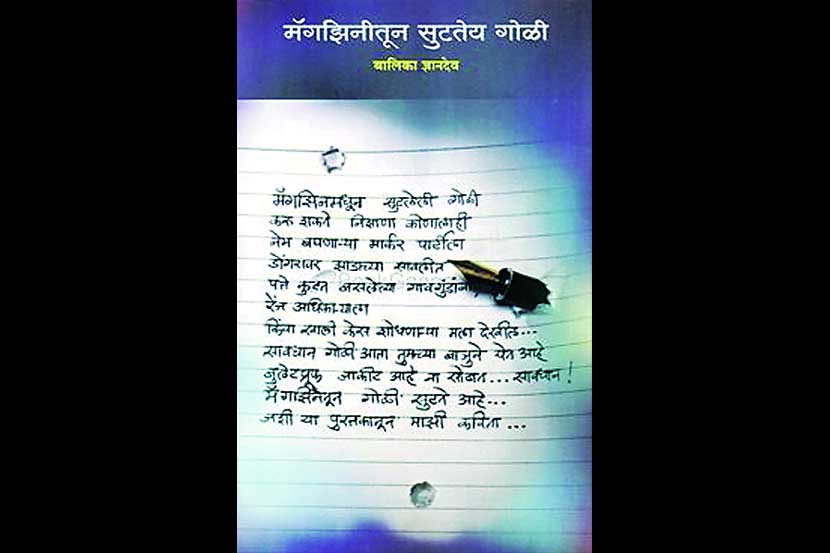 मॅगझिनीतून सुटतेय गोळी
बालिका ज्ञानदेव
मॅगझिनमधून सुटलेली गोळी
करू शकते निशाणा कोणालाही
नेम बघणाऱ्या मार्कर पार्टीला
डोंगरावर झाडाच्या सावलीत
पत्ते कुटत बसलेल्या गावगुंडांना
रेंज अधिकाऱ्याला
किंवा खाली केस शोधणाऱ्या मला देखील...
सावधान गोळी आता तुमच्या बाजुने येत आहे
बुलेटप्रूफ जाकीट आहे ना सोबत... सावधान!
मॅगझिनीतून गोळी सुटते आहे...
जशी या पुस्तकातून माझी कविता...